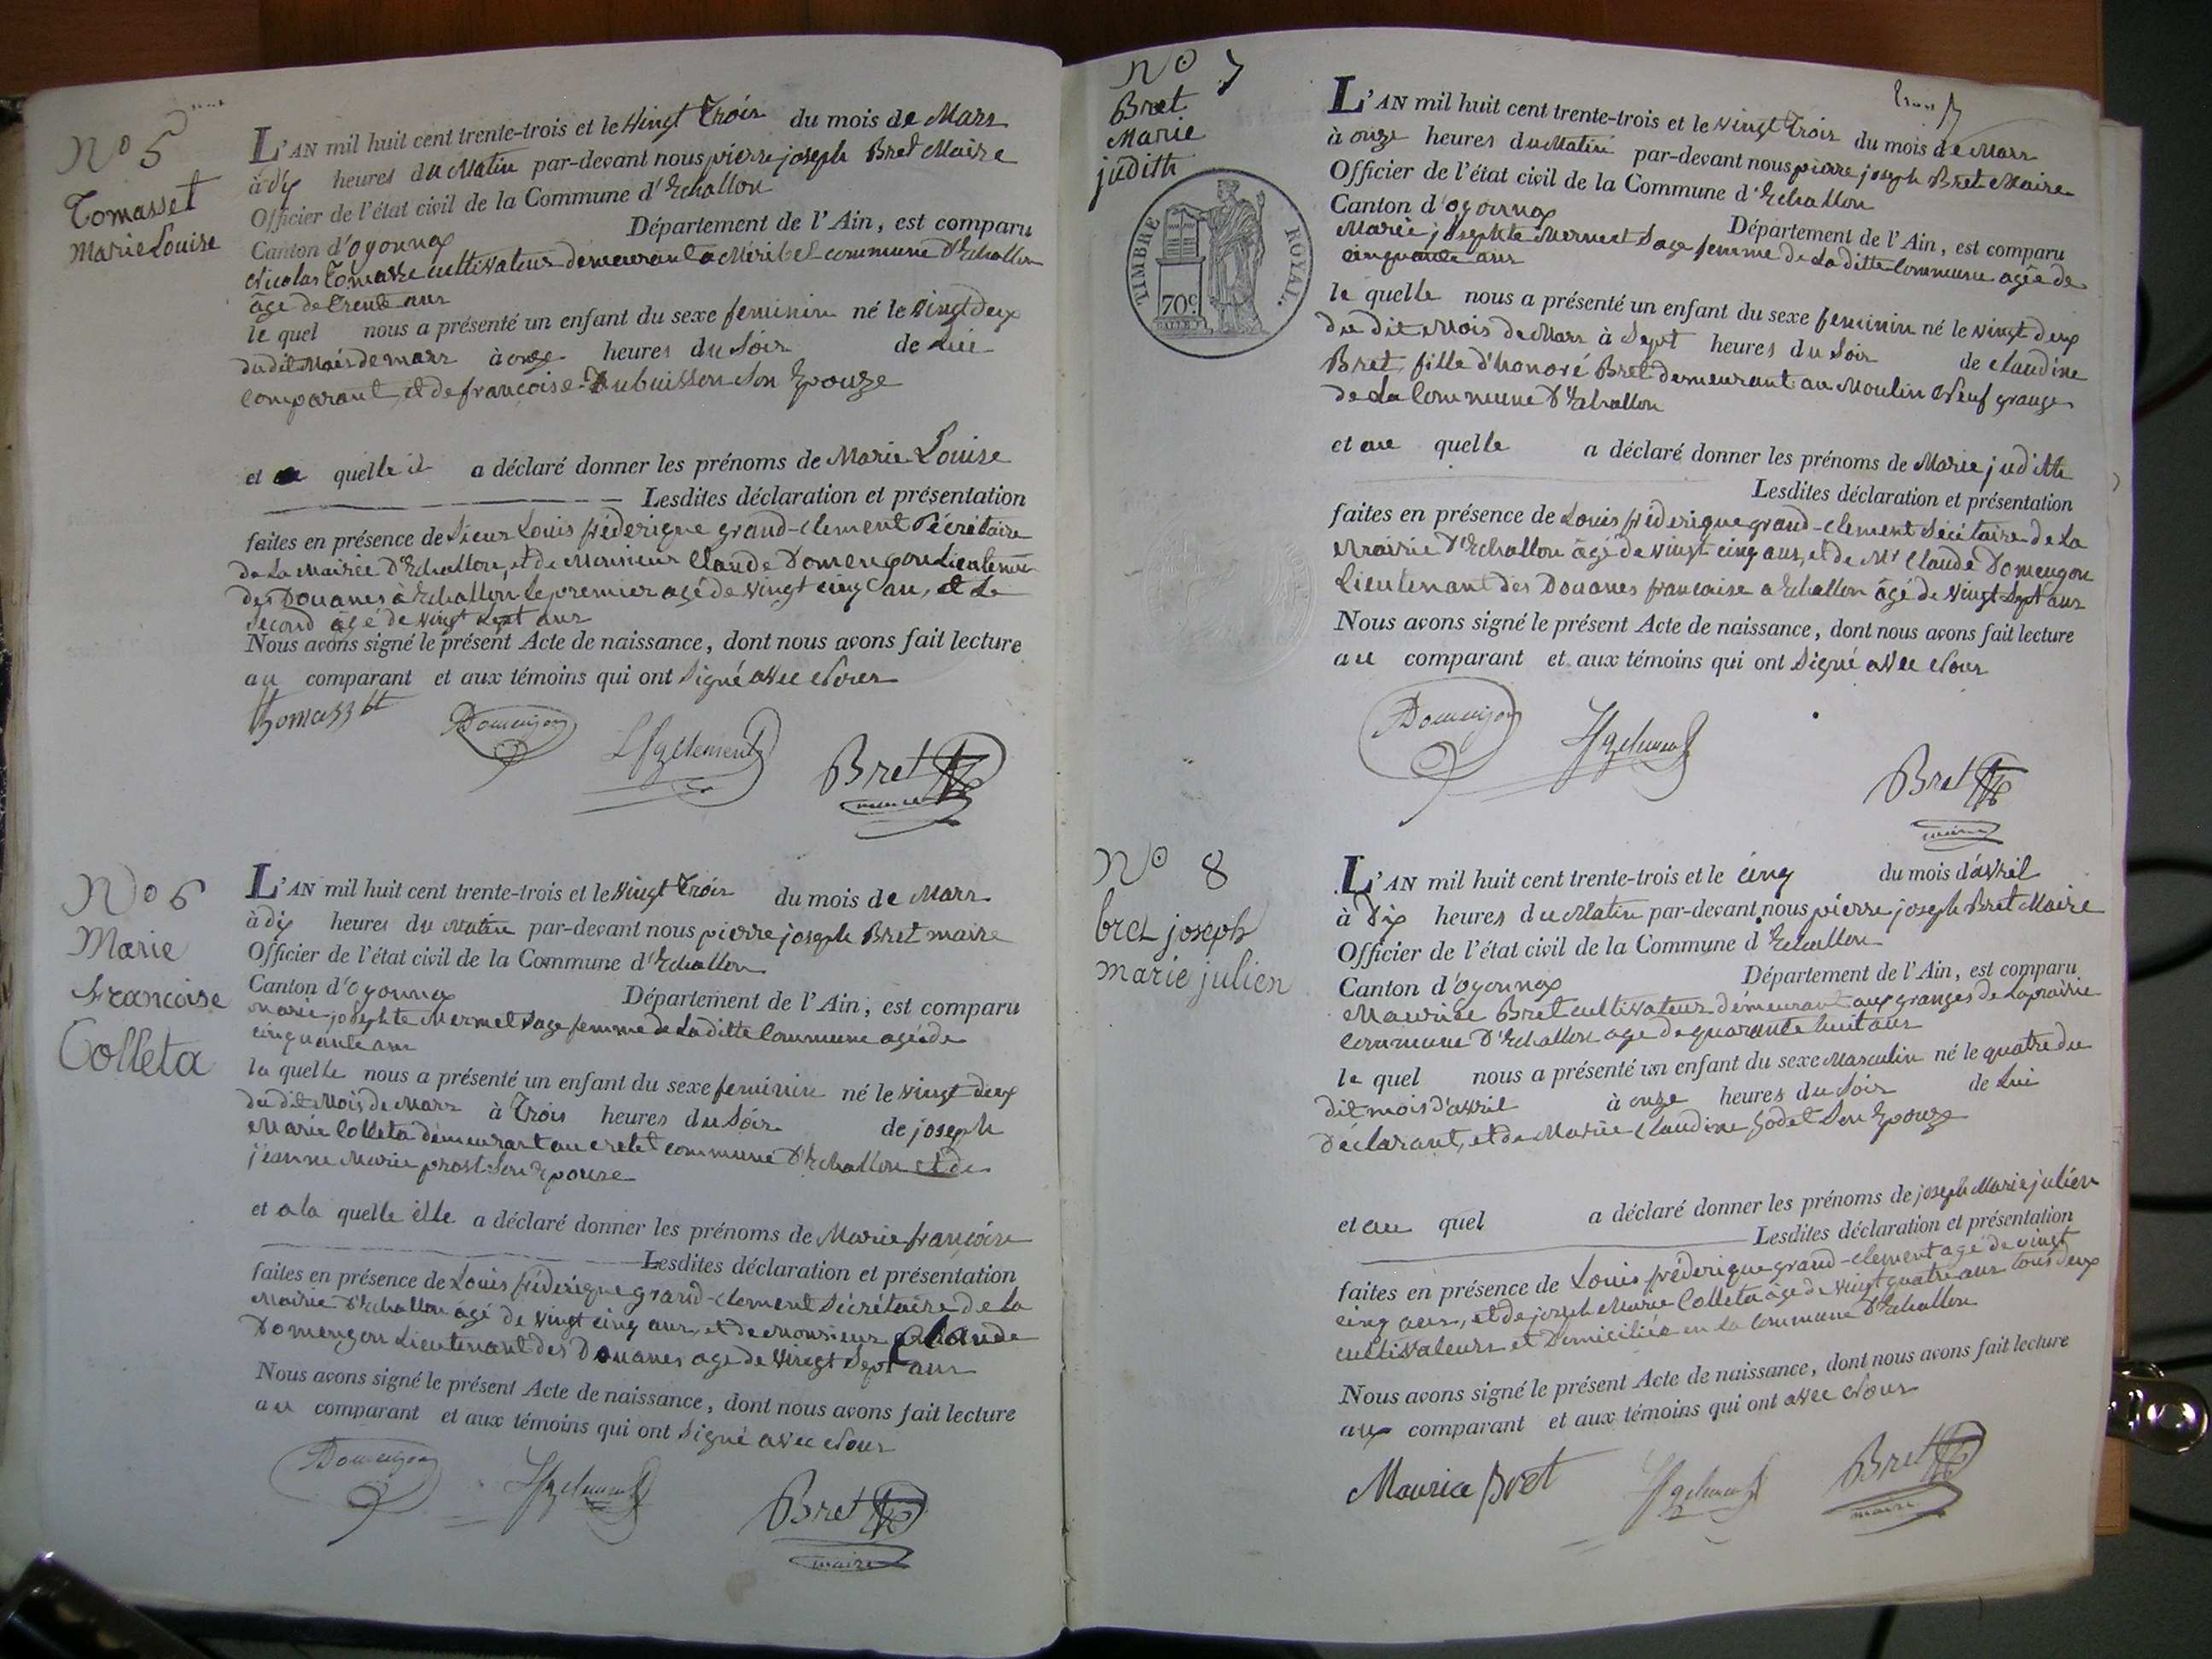 No 5
Tomasset
Marie Louise
L'AN mil huit cent trente-trois et le vingt trois du mois de Mars
à dix heures du Matin par-devant nous pierre joseph Bret Maire
Officier de l'état civil de la Commune d'Echallon
Canton d'oyonnax Département de l'Ain, est comparu
Nicolas Tomasse cultivateur demeurant a Méribel commune D'Echallon
âge de trente ans
le quel nous a présenté un enfant du sexe feminin né le vingt deux
du dit Mois de mars à onze heures du Soir de Lui
comparant, et de françoise Dubuisson Son Epouze
et a quelle il a déclaré donner les prénoms de Marie Louise
Lesdites déclaration et présentation
faites en présence de Sieur Louis fréderique grand-clement Sécrétaire
de La Mairie D'Echallon, et de Monsieur Claude Domengon Lieutenant
des Douanes à Echallon le premier agé de vingt cinq an, et Le
Second âgé de vingt Sept ans
Nous avons signé le présent Acte de naissance, dont nous avons fait lecture
au comparant et aux témoins qui ont Signé avec Nous
Domengon
Lfgclement
Bret
maire
No 6
Marie
Francoise
Colleta
L'AN mil huit cent trente-trois et le vingt trois du mois de Mars
à dix heures du Matin par-devant nous pierre joseph Bret maire
Officier de l'état civil de la Commune d'Echallon
Canton d'oyonnax Département de l'Ain, est comparu
Marie josephte Mermet Sage femme de La ditte Commune agée de
cinquante ans
la quelle nous a présenté un enfant du sexe feminin né le vingt deux
du dit Mois de Mars à Trois heures du Soir de joseph
Marie Colleta démeurant au cretet commune D'Echallon et de
jeanne Marie prost Son Epouse
et a la quelle elle a déclaré donner les prénoms de Marie françoise
Lesdites déclaration et présentation
faites en présence de Louis fréderique grand-clement Sécrétaire de La
Mairie D'Echallon agé de vingt cinq ans, et de Monsieur Claude
Domengon Lieutenant des Douanes age de vingt Sept ans
Nous avons signé le présent Acte de naissance, dont nous avons fait lecture
au comparant et aux témoins qui ont Signé avec Nous
Domengon
Lfgclement
Bret
maire
No 7
Bret
Marie
judith
TIMBRE ROYAL.
70c.
L'AN mil huit cent trente-trois et le vingt Trois du mois de Mars
à onze heures du Matin par-devant nous pierre joseph Bret Maire
Officier de l'état civil de la Commune d'Echallon
Canton d'oyonnax Département de l'Ain, est comparu
Marie josephte Mermet Sage femme de La ditte Commune agée de
cinquante ans
la quelle nous a présenté un enfant du sexe feminin né le vingt deux
du dit Mois de Mars à Sept heures du Soir de claudine
Bret, fille d'honoré Bret demeurant au Moulin Neuf grange
de La Commune D'Echallon
et au quelle a déclaré donner les prénoms de Marie judith
Lesdites déclaration et présentation
faites en présence de Louis fréderique grand-clement Sécrétaire de La
Mairie D'Echallon âgé de vingt cinq ans, et de Mr Claude Domengon
Lieutenant des Douanes francaise a Echallon âgé de vingt Sept ans
Nous avons signé le présent Acte de naissance, dont nous avons fait lecture
au comparant et aux témoins qui ont Signé avec Nous
Domengon
Lfgclement
Bret
maire
No 8
bret joseph
marie julien
L'AN mil huit cent trente-trois et le cinq du mois d'avril
à Dix heures du Matin par-devant nous pierre joseph Bret Maire
Officier de l'état civil de la Commune d'Echallon
Canton d'oyonnax Département de l'Ain, est comparu
Maurice Bret cultivateur démeurant aux granges de Laprairie
commune D'Echallon age de quarante huit ans
le quel nous a présenté un enfant du sexe Masculin né le quatre du
dit mois d'avril à onze heures du Soir de Lui
Déclarant, et de Marie claudine godet Son Epouze
et au quel a déclaré donner les prénoms de joseph Marie julien
Lesdites déclaration et présentation
faites en présence de Louis fréderique grand-clement agé de vingt
cinq ans, et de joseph Marie Colleta âge de vingt quatre ans tous deux
cultivateurs et Domiciliés en La Commune D'Echallon
Nous avons signé le présent Acte de naissance, dont nous avons fait lecture
aux comparant et aux témoins qui ont avec Nous
Maurice Bret
Lfgclement
Bret
maire